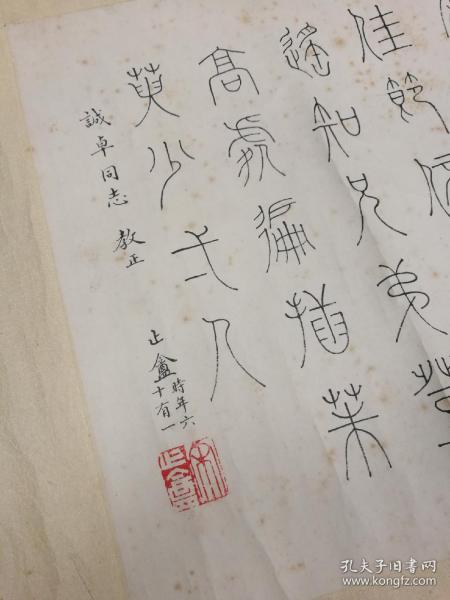 佳節倍
遙知兄弟登
高處徧插茱
萸少弌人
誠卓同志 教正
止盦時年六十有一
止盦
孔夫子旧书网
www.kongfz.com